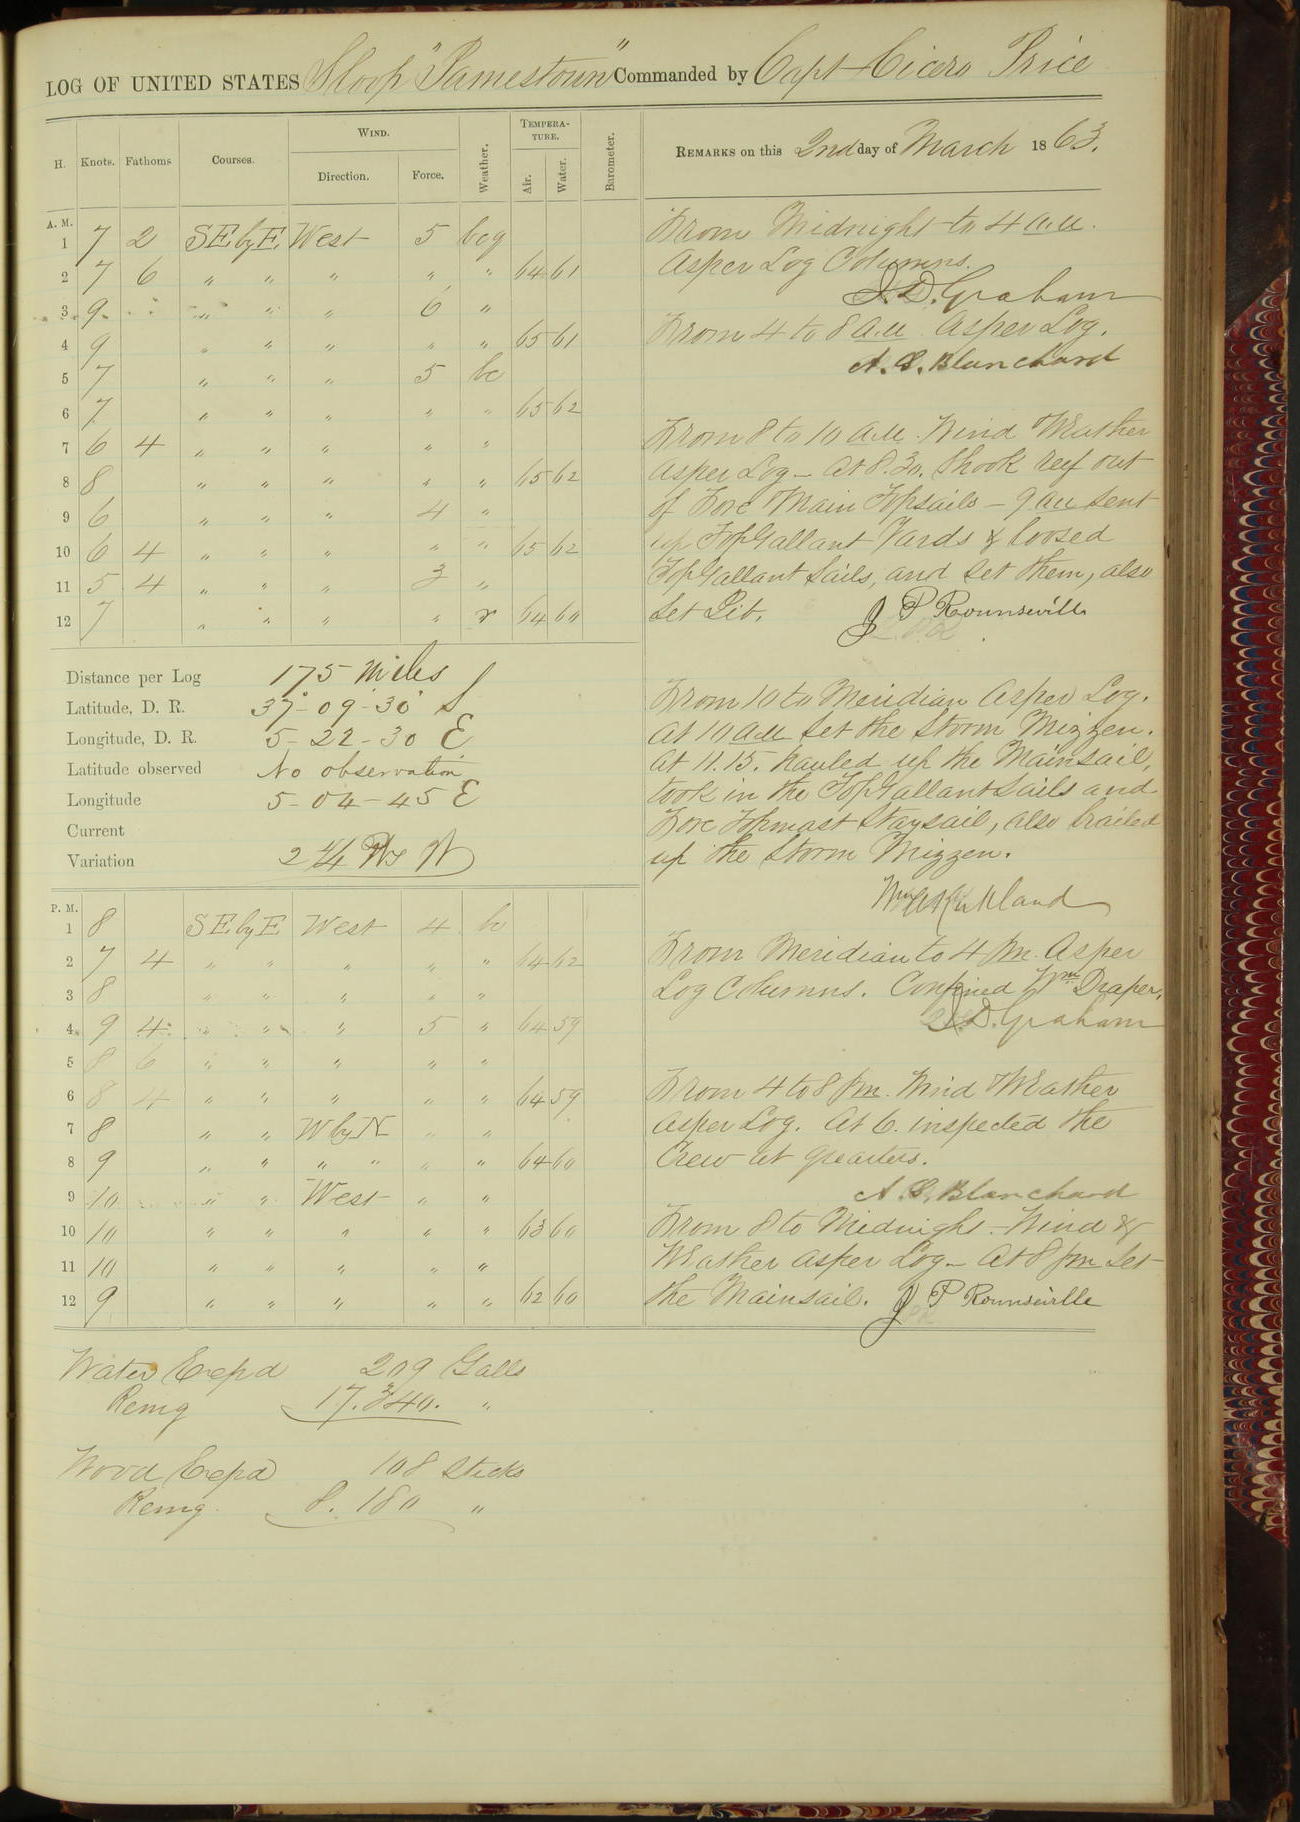 LOG OF UNITED STATES Sloop "Jamestown" Commanded by Capt Cicero Price
H. Knots. Fathoms Courses. WIND. Direction. Force. Weather. TEMPERATURE. Air. Water. Barometer. REMARKS on this 2nd day of March 1863.
A. M.
1 7 2 SE by E West 5 bcq
2 7 6 " " " " " 64 61
3 9 " " " 6 "
4 9 " " " " " 65 61
5 7 " " " 5 bc
6 7 " " " " " 65 62
7 6 4 " " " " "
8 8 " " " " " 65 62
9 6 " " " 4 "
10 6 4 " " " " " 65 62
11 5 4 " " " 3 "
12 7 " " " " r 64 60
From Midnight to 4 a.m.
As per Log Columns.
J. D. Graham
From 4 to 8 a.m. As per Log.
A. S. Blanchard
From 8 to 10 a.m. Wind Weather
as per Log - At 8.30. Shook reef out
of Fore Main Topsails - 9 am sent
up TopGallant Yards & loosed
TopGallant Sails, and set them, also
set Jib. J P Rounseville
Distance per Log 175 Miles
Latitude, D. R. 37-09-30 S
Longitude, D. R. 5-22-30 E
Latitude observed No observation
Longitude 5-04-45 E
Current
Variation 2 1/4 Pts W
From 10 to Meridian As per Log.
At 10 a.m. set the Storm Mizzen.
At 11.15. hauled up the Mainsail,
took in the TopGallant Sails and
Fore Topmast Staysail, also brailed
up the Storm Mizzen.
Wm A Kirkland
P. M.
1 8 SE by E West 4 bc
2 7 4 " " " " " 64 62
3 8 " " " " "
4 9 4 " " " 5 " 64 59
5 8 6 " " " " "
6 8 4 " " " " " 64 59
7 8 " " W by N " "
8 9 " " " " " " 64 60
9 10 " " West " "
10 10 " " " " " 63 60
11 10 " " " " "
12 9 " " " " " 62 60
From Meridian to 4 pm. As per
Log Columns. Confined Wm Draper.
J. D. Graham
From 4 to 8 pm. Wind Weather
as per Log. At 6. inspected the
Crew at quarters.
A. S. Blanchard
From 8 to Midnight. Wind &
Weather as per Log - At 8 pm set
the Mainsail. J P Rounseville
Water Expd 209 Galls
Remg 17.340. "
Wood Expd 108 Sticks
Remg. 8.180 "